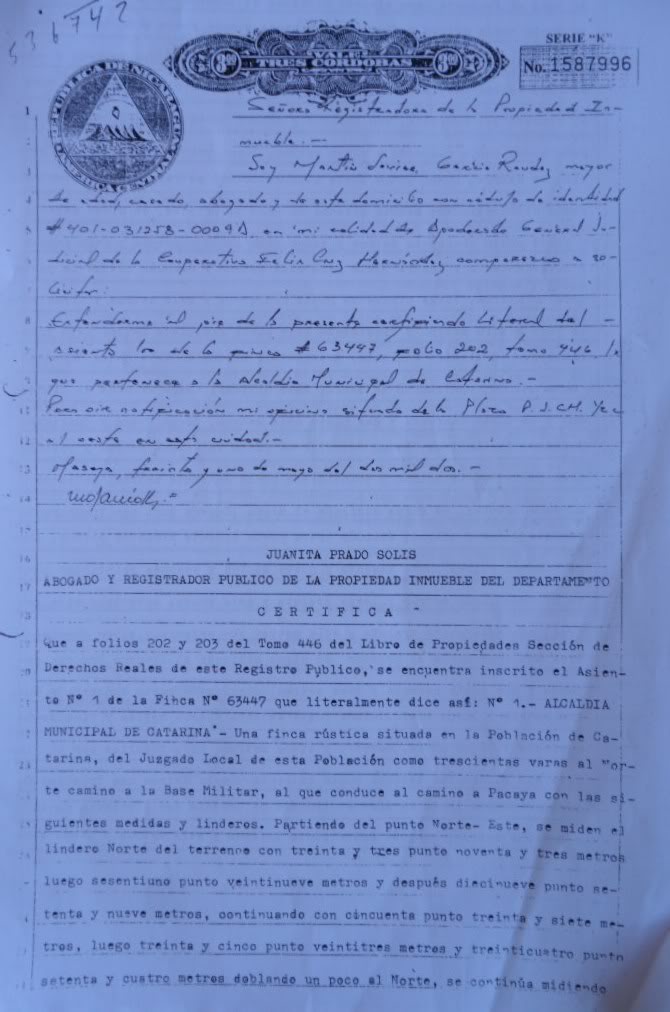 536742
VALE
TRES CORDOBAS
SERIE "K"
No. 1587996
REPUBLICA DE NICARAGUA
AMERICA CENTRAL
Señora Registradora de la Propiedad In-
mueble.-
Soy Martín Javier García Raudez mayor
de edad, casado, abogado y de este domicilio con cédula de identidad
# 401-031258-0009D, en mi calidad de Apoderado General Ju-
dicial de la Cooperativa Felix Cruz Hernández comparezco a so-
licitar:
Extenderme al pie de la presente certificando literal del -
asiento 1ro de la finca # 63447, folio 202, tomo 446, la
que pertenece a la Alcaldia Municipal de Catarina.-
Para oir notificación mi oficina situada de la Plaza P.J.CH. 1/2 c
al oeste en esta ciudad.-
Masaya, treinta y uno de mayo del dos mil dos.-
JUANITA PRADO SOLIS
ABOGADO Y REGISTRADOR PUBLICO DE LA PROPIEDAD INMUEBLE DEL DEPARTAMENTO
C E R T I F I C A
Que a folios 202 y 203 del Tomo 446 del Libro de Propiedades Sección de
Derechos Reales de este Registro Publico, se encuentra inscrito el Asien-
to Nº 1 de la Fihca Nº 63447 que literalmente dice así: Nº 1.- ALCALDIA
MUNICIPAL DE CATARINA"- Una finca rústica situada en la Población de Ca-
tarina, del Juzgado Local de esta Población como trescientas varas al Nor-
te camino a la Base Militar, al que conduce al camino a Pacaya con las si-
guientes medidas y linderos. Partiendo del punto Norte- Este, se miden el
lindero Norte del terreno con treinta y tres punto noventa y tres metros
luego sesentiuno punto veintinueve metros y después diecinueve punto se-
tenta y nueve metros, continuando con cincuenta punto treinta y siete me-
tros, luego treinta y cinco punto veintitres metros y treinticuatro punto
setenta y cuatro metros doblando un poco al Norte, se continúa midiendo